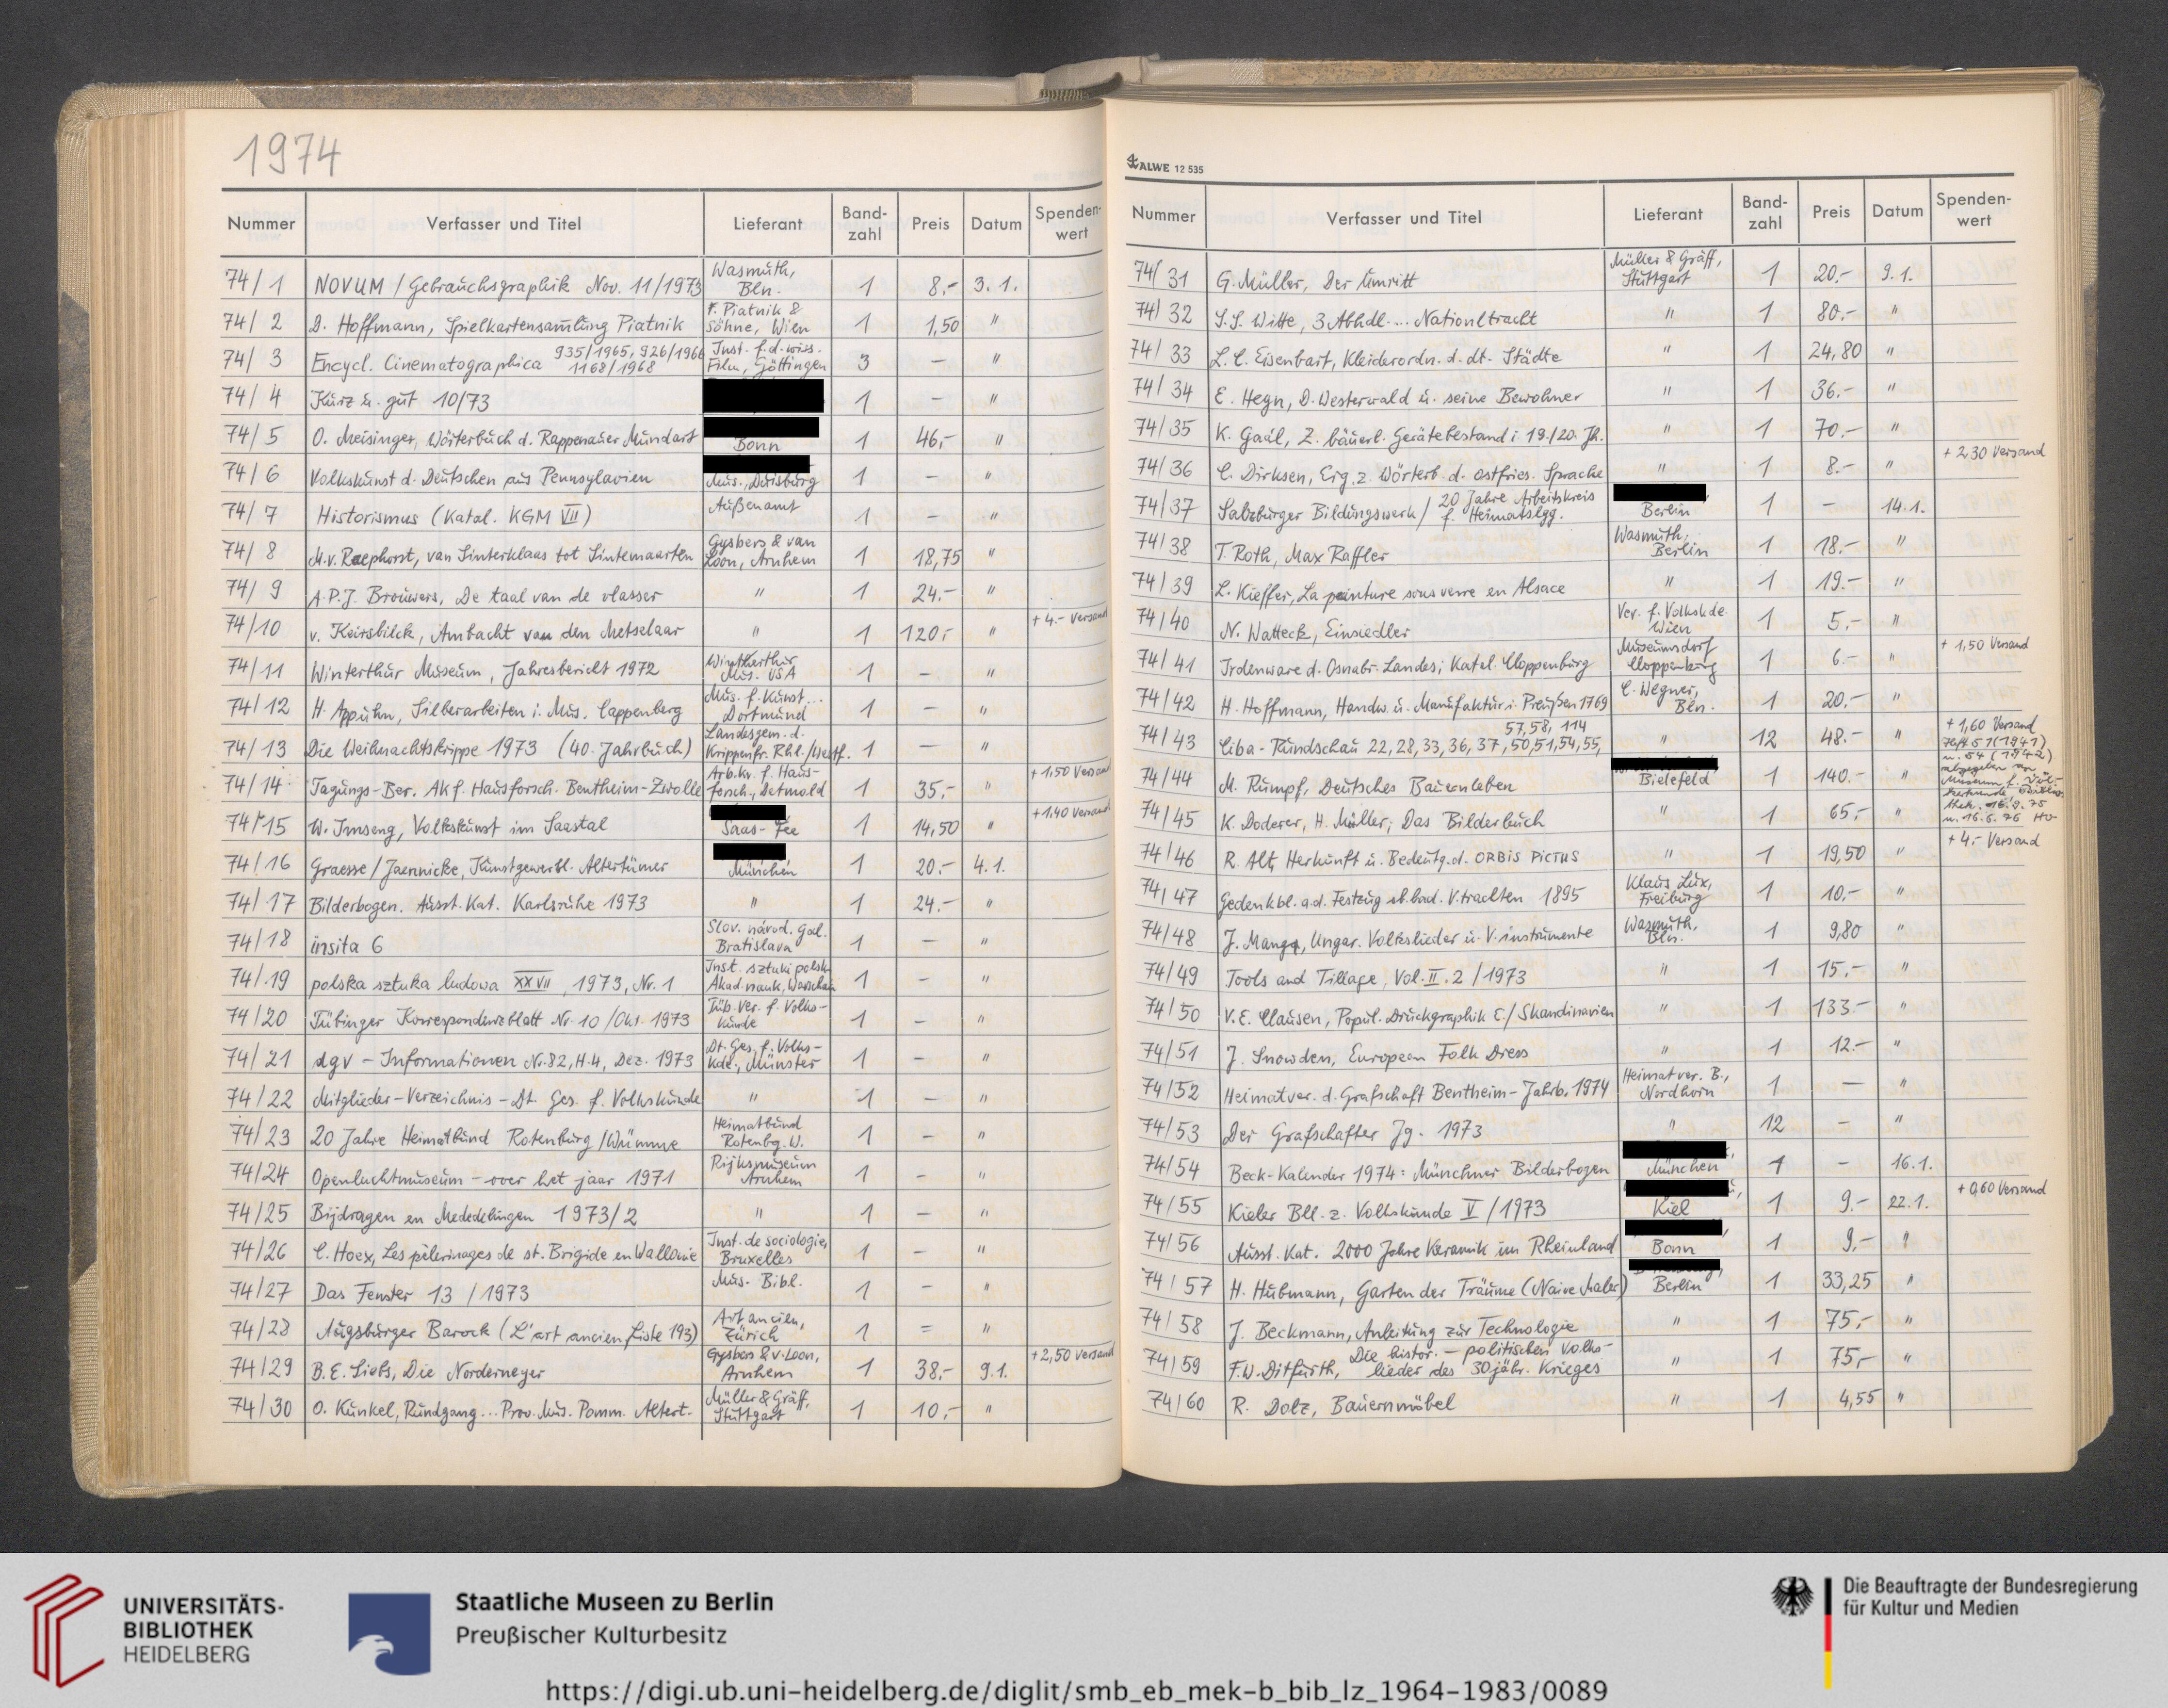 1974
Nummer Verfasser und Titel Lieferant Band-zahl Preis Datum Spenden-wert
74/1 NOVUM / Gebrauchsgraphik Nov. 11/1973 Wasmuth, Bln. 1 8,- 3.1.
74/2 D. Hoffmann, Spielkartensammlung Piatnik F. Piatnik & Söhne, Wien 1 1,50 "
74/3 Encycl. Cinematographica 935/1965, 926/1966 1168/1968 Inst. f. d. wiss. Film, Göttingen 3 – "
74/4 Kurz u. gut 10/73 1 – "
74/5 O. Meisinger, Wörterbuch d. Rappenauer Mundart Bonn 1 46,- "
74/6 Volkskunst d. Deutschen aus Pennsylavien Mus., Duisburg 1 – "
74/7 Historismus (Katal. KGM VII) Außenamt 1 – "
74/8 M. v. Raephorst, van Sinterklaas tot Sintemaarten Gysbers & van Loon, Arnhem 1 18,75 "
74/9 A.P.J. Brouwers, De taal van de vlasser " 1 24.- "
74/10 v. Keirsbilck, Ambacht van den Metselaar " 1 120,- " + 4.- Versand
74/11 Winterthur Museum, Jahresbericht 1972 Winthærthur Mus. USA 1 – "
74/12 H. Appuhn, Silberarbeiten i. Mus. Cappenberg Mus. f. Kunst... Dortmund 1 – "
74/13 Die Weihnachtskrippe 1973 (40. Jahrbuch) Landesgem. d. Krippenfr. Rhl./Westf. 1 – "
74/14 Tagungs-Ber. Ak f. Hausforsch. Bentheim-Zwolle Arb.kr. f. Haus-forsch., Detmold 1 35,- " + 1,50 Versand
74/15 W. Imseng, Volkskunst im Saastal Saas-Fee 1 14,50 " + 1,40 Versand
74/16 Graesse/Jaennicke, Kunstgewerbl. Altertümer München 1 20.- 4.1.
74/17 Bilderbogen. Ausst. Kat. Karlsruhe 1973 " 1 24.- "
74/18 insita 6 Slov. národ. gal. Bratislava 1 – "
74/19 polska sztuka ludowa XXVII, 1973, Nr. 1 Inst. sztuki polsk. Akad. nauk, Warschau 1 – "
74/20 Tübinger Korrespondenzblatt Nr. 10/Okt. 1973 Tüb. Ver. f. Volks-kunde 1 – "
74/21 dgv – Informationen Nr. 82, H. 4, Dez. 1973 Dt. Ges. f. Volks-kde., Münster 1 – "
74/22 Mitglieder-Verzeichnis – Dt. Ges. f. Volkskunde " 1 – "
74/23 20 Jahre Heimatbund Rotenburg/Wümme Heimatbund Rotenbg. W. 1 – "
74/24 Openluchtmuseum – over het jaar 1971 Rijksmuseum Arnhem 1 – "
74/25 Bijdragen en Mededelingen 1973/2 " 1 – "
74/26 C. Hoex, Les pèlerinages de st. Brigide en Wallonie Inst. de sociologie, Bruxelles 1 – "
74/27 Das Fenster 13 / 1973 Mus. Bibl. 1 – "
74/28 Augsburger Barock (L'art ancien Liste 193) Art ancien, Zürich 1 = "
74/29 B.E. Siebs, Die Norderneyer Gysbers & v. Loon, Arnhem 1 38,- 9.1. + 2,50 Versand
74/30 O. Kunkel, Rundgang... Prov. Mus. Pomm. Altert. Müller & Gräff, Stuttgart 1 10,- "
ALWE 12 535
Nummer Verfasser und Titel Lieferant Band-zahl Preis Datum Spenden-wert
74/31 G. Müller, Der Umritt Müller & Gräff, Stuttgart 1 20.- 9.1.
74/32 S.S. Witte, 3 Abhdl.... Nationltracht " 1 80.- "
74/33 L.C. Eisenbart, Kleiderordn. d. dt. Städte " 1 24,80 "
74/34 E. Hegn, D. Westerwald u. seine Bewohner " 1 36.- "
74/35 K. Gaál, Z. bäuerl. Gerätebestand i. 19./20. Jh. " 1 70.- "
74/36 C. Dirksen, Erg. z. Wörterb. d. ostfries. Sprache " 1 8.- " + 2,30 Versand
74/37 Salzburger Bildungswerk / 20 Jahre Arbeitskreis f. Heimatslgg. Berlin 1 – 14.1.
74/38 T. Roth, Max Raffler Wasmuth, Berlin 1 18.- "
74/39 L. Kieffer, La peinture sous verre en Alsace " 1 19.- "
74/40 N. Watteck, Einsiedler Ver. f. Volkskde. Wien 1 5.- "
74/41 Irdenware d. Osnabr. Landes; Katal. Cloppenburg Museumsdorf Cloppenburg 1 6.- " + 1,50 Versand
74/42 H. Hoffmann, Handw. u. Manufaktur i. Preußen 1769 C. Wegner, Bln. 1 20.- "
74/43 Ciba-Rundschau 22, 28, 33, 36, 37, 50, 51, 54, 55, 57, 58, 114 " 12 48.- " + 1,60 Versand
Heft 51 (1941) u. 54 (1942) abgegeben an Museum f. Völ-kerkunde, Biblio-thek. 16.9.75 u. 16.6.76 Ho
74/44 M. Rumpf, Deutsches Bauernleben Bielefeld 1 140.- "
74/45 K. Doderer, H. Müller; Das Bilderbuch " 1 65,- "
74/46 R. Alt, Herkunft u. Bedeutg. d. ORBIS PICTUS " 1 19,50 " + 4,- Versand
74/47 Gedenkbl. a. d. Festzug bad. V. trachten 1895 Klaus Lux, Freiburg 1 10,- "
74/48 J. Manga, Ungar. Volkslieder u. V. instrumente Wasmuth, Bln. 1 9,80 "
74/49 Tools and Tillage, Vol. II. 2 / 1973 " 1 15.- "
74/50 V.E. Clausen, Popul. Druckgraphik E./Skandinavien " 1 133.- "
74/51 J. Snowden, European Folk Dress " 1 12.- "
74/52 Heimatver. d. Grafschaft Bentheim – Jahrb. 1974 Heimatver. B., Nordhorn 1 – "
74/53 Der Grafschafter Jg. 1973 " 12 – "
74/54 Beck-Kalender 1974: Münchner Bilderbogen München 1 – 16.1.
74/55 Kieler Bll. z. Volkskunde V / 1973 Kiel 1 9.- 22.1. + 0,60 Versand
74/56 Ausst. Kat. 2000 Jahre Keramik im Rheinland Bonn 1 9,- "
74/57 H. Hubmann, Garten der Träume (Naive Maler) Berlin 1 33,25 "
74/58 J. Beckmann, Anleitung zur Technologie " 1 75,- "
74/59 F.W. Ditfurth, Die histor.-politischen Volks-lieder des 30 jähr. Krieges " 1 75,- "
74/60 R. Dolz, Bauernmöbel " 1 4,55 "
UNIVERSITÄTS-
BIBLIOTHEK
HEIDELBERG
Staatliche Museen zu Berlin
Preußischer Kulturbesitz
Die Beauftragte der Bundesregierung
für Kultur und Medien
https://digi.ub.uni-heidelberg.de/diglit/smb_eb_mek-b_bib_lz_1964-1983/0089